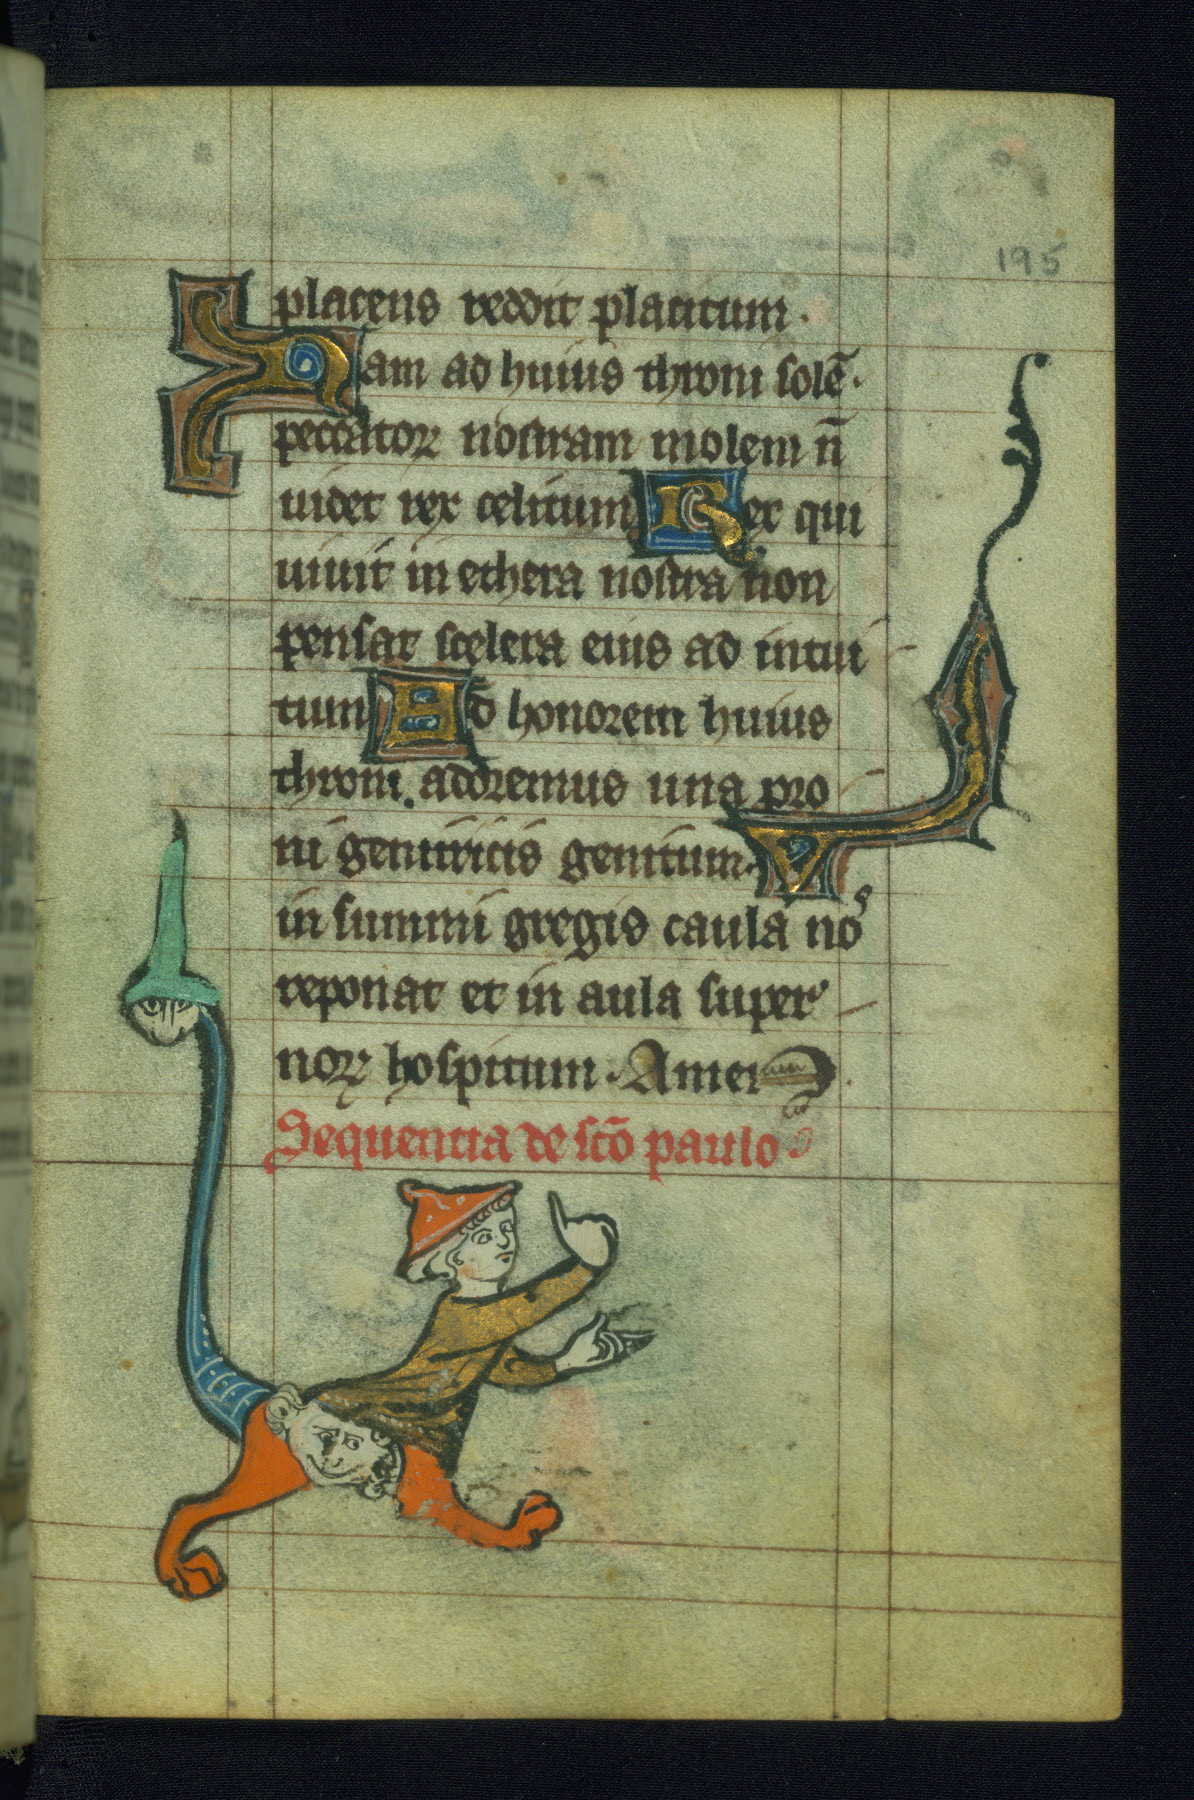 195
placens reddit placitum.
Nam ad huius throni solē.
peccator nostram molem n̄
uidet rex celitum Rex qui
uiuit in ethera nostra non
pensat scelera eius ad intui
tum Ad honorem huius
throni. adoremus una pro
ni genitricis genitum. V
in summi gregis caula no⁹
reponat et in aula super
noꝝ hospitum. Amen
Sequentia de sc̄o paulo